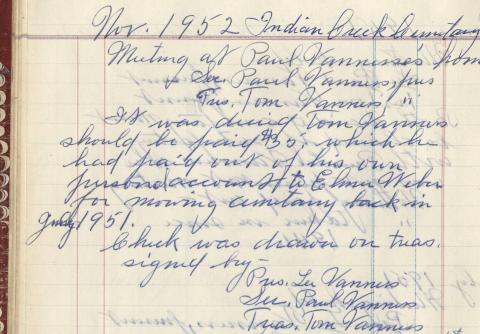 Nov. 1952 Indian Creek Cemetary
Meeting at Paul Vannesses home
Sec. Paul Vanness, pres
Tres. Tom Vanness, "
It was decied Tom Vanness
should be paid $35 which he
had paid out of his own
personal account to Elmer Weber
for mowing cemetary back in
July 1951.
Check was drawn on treas.
signed by -
Pres. Lee Vanness
Sec. Paul Vanness
Treas. Tom Vanness